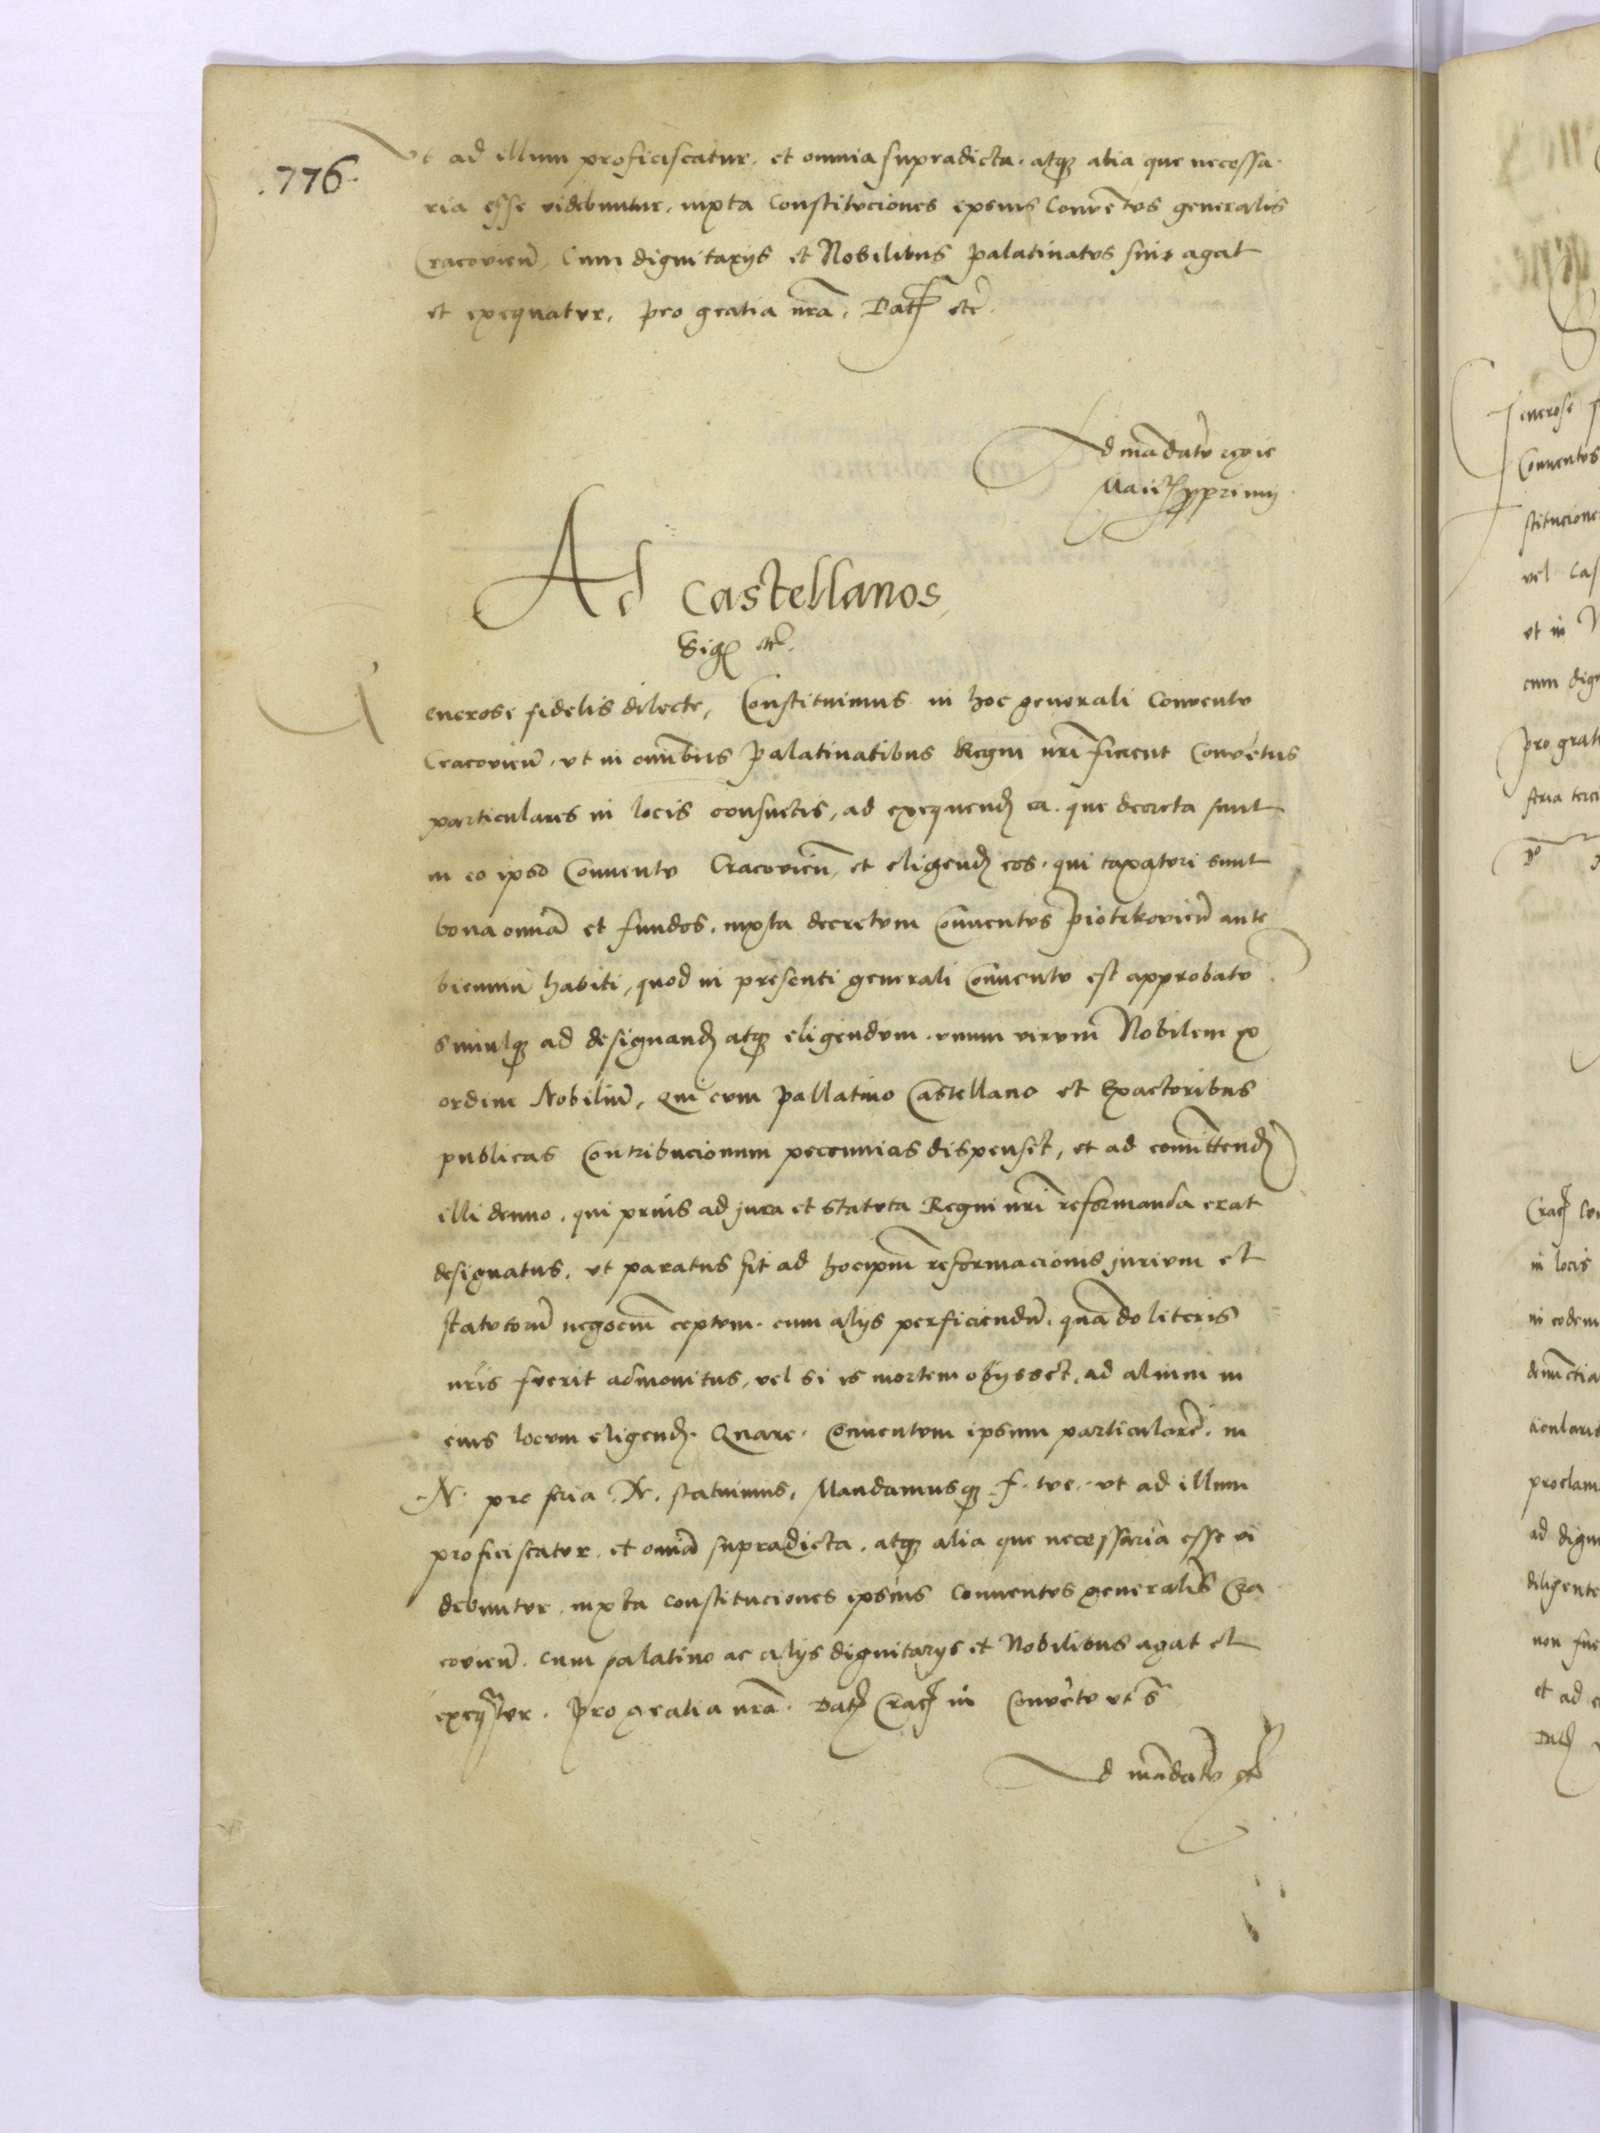 .776.
vt ad illum proficiscatur. et omnia supradicta. atq3 alia que necessa
ria esse videbuntur, iuxta Constituciones ipsius Conve͂tus generalis
Cracovien͂, Cum dignitariis et Nobilibus Palatinatus sui agat
et exequatur, Pro gratia nra͂. Dat͂ etc͂.
Ad ma͂datu͂ regie
Maiest͂ pprium
Ad Castellanos,
Sig͂ etc͂.
Generose fidelis dilecte, Constituimus in hoc generali Conventu
Cracovien͂, vt in omnibus Palatinatibus Regni nri͂ fierent Conve͂tus
particulares in locis consuetis, ad exequend͂ ea. que decreta sunt
in eo ipso Conventu Cracovien͂, et eligend͂ eos. qui taxaturi sunt
bona omnia͂ et fundos, iuxta decretum Conventus Piotrkovien͂ ante
bienniu͂ habiti, quod in presenti generali Conventu est approbatu͂
simulq3 ad designand͂ atq3 eligendum. vnum virum Nobilem ex
ordine Nobiliu͂, Qui cum Pallatino Castellano et Exactoribus
publicas Contribucionum peccunias dispenset, et ad comittend͂
illi denuo, qui prius ad jura et statuta Regni nri͂ reformanda erat
designatus, vt paratus sit ad hoc ipm͂ reformacionis jurium et
statutoru͂ negocm͂ ceptum. cum alijs perficiendu͂. qua͂do literis
nris͂ fuerit admonitus, vel si is mortem obijsset, ad alium in
eius locum eligend͂. Quare. Conventum ipsum particulare͂. in
.N. pro feria .N. statuimus, Mandamusq3 f. tue. vt ad illum
proficiscatur. et omnia͂ supradicta. atq3 alia que necessaria esse vi
debuntur. iuxta constituciones ipsius Conventus generalis Cra
covien͂. Cum palatino ac alijs dignitarijs et Nobilibus agat et
exeq͂tur. Pro gratia nra͂. Dat͂ Crac͂ in Conve͂tu vt s͂
Ad ma͂datu͂ etc͂
Generose
Conventus
stitucione
vel Cas
et in
cum dign
pro grati
feria terci
Crac͂
in locis
in eodem
ticularis
proclam
ad dign
diligente
non fue
et ad
Dat͂